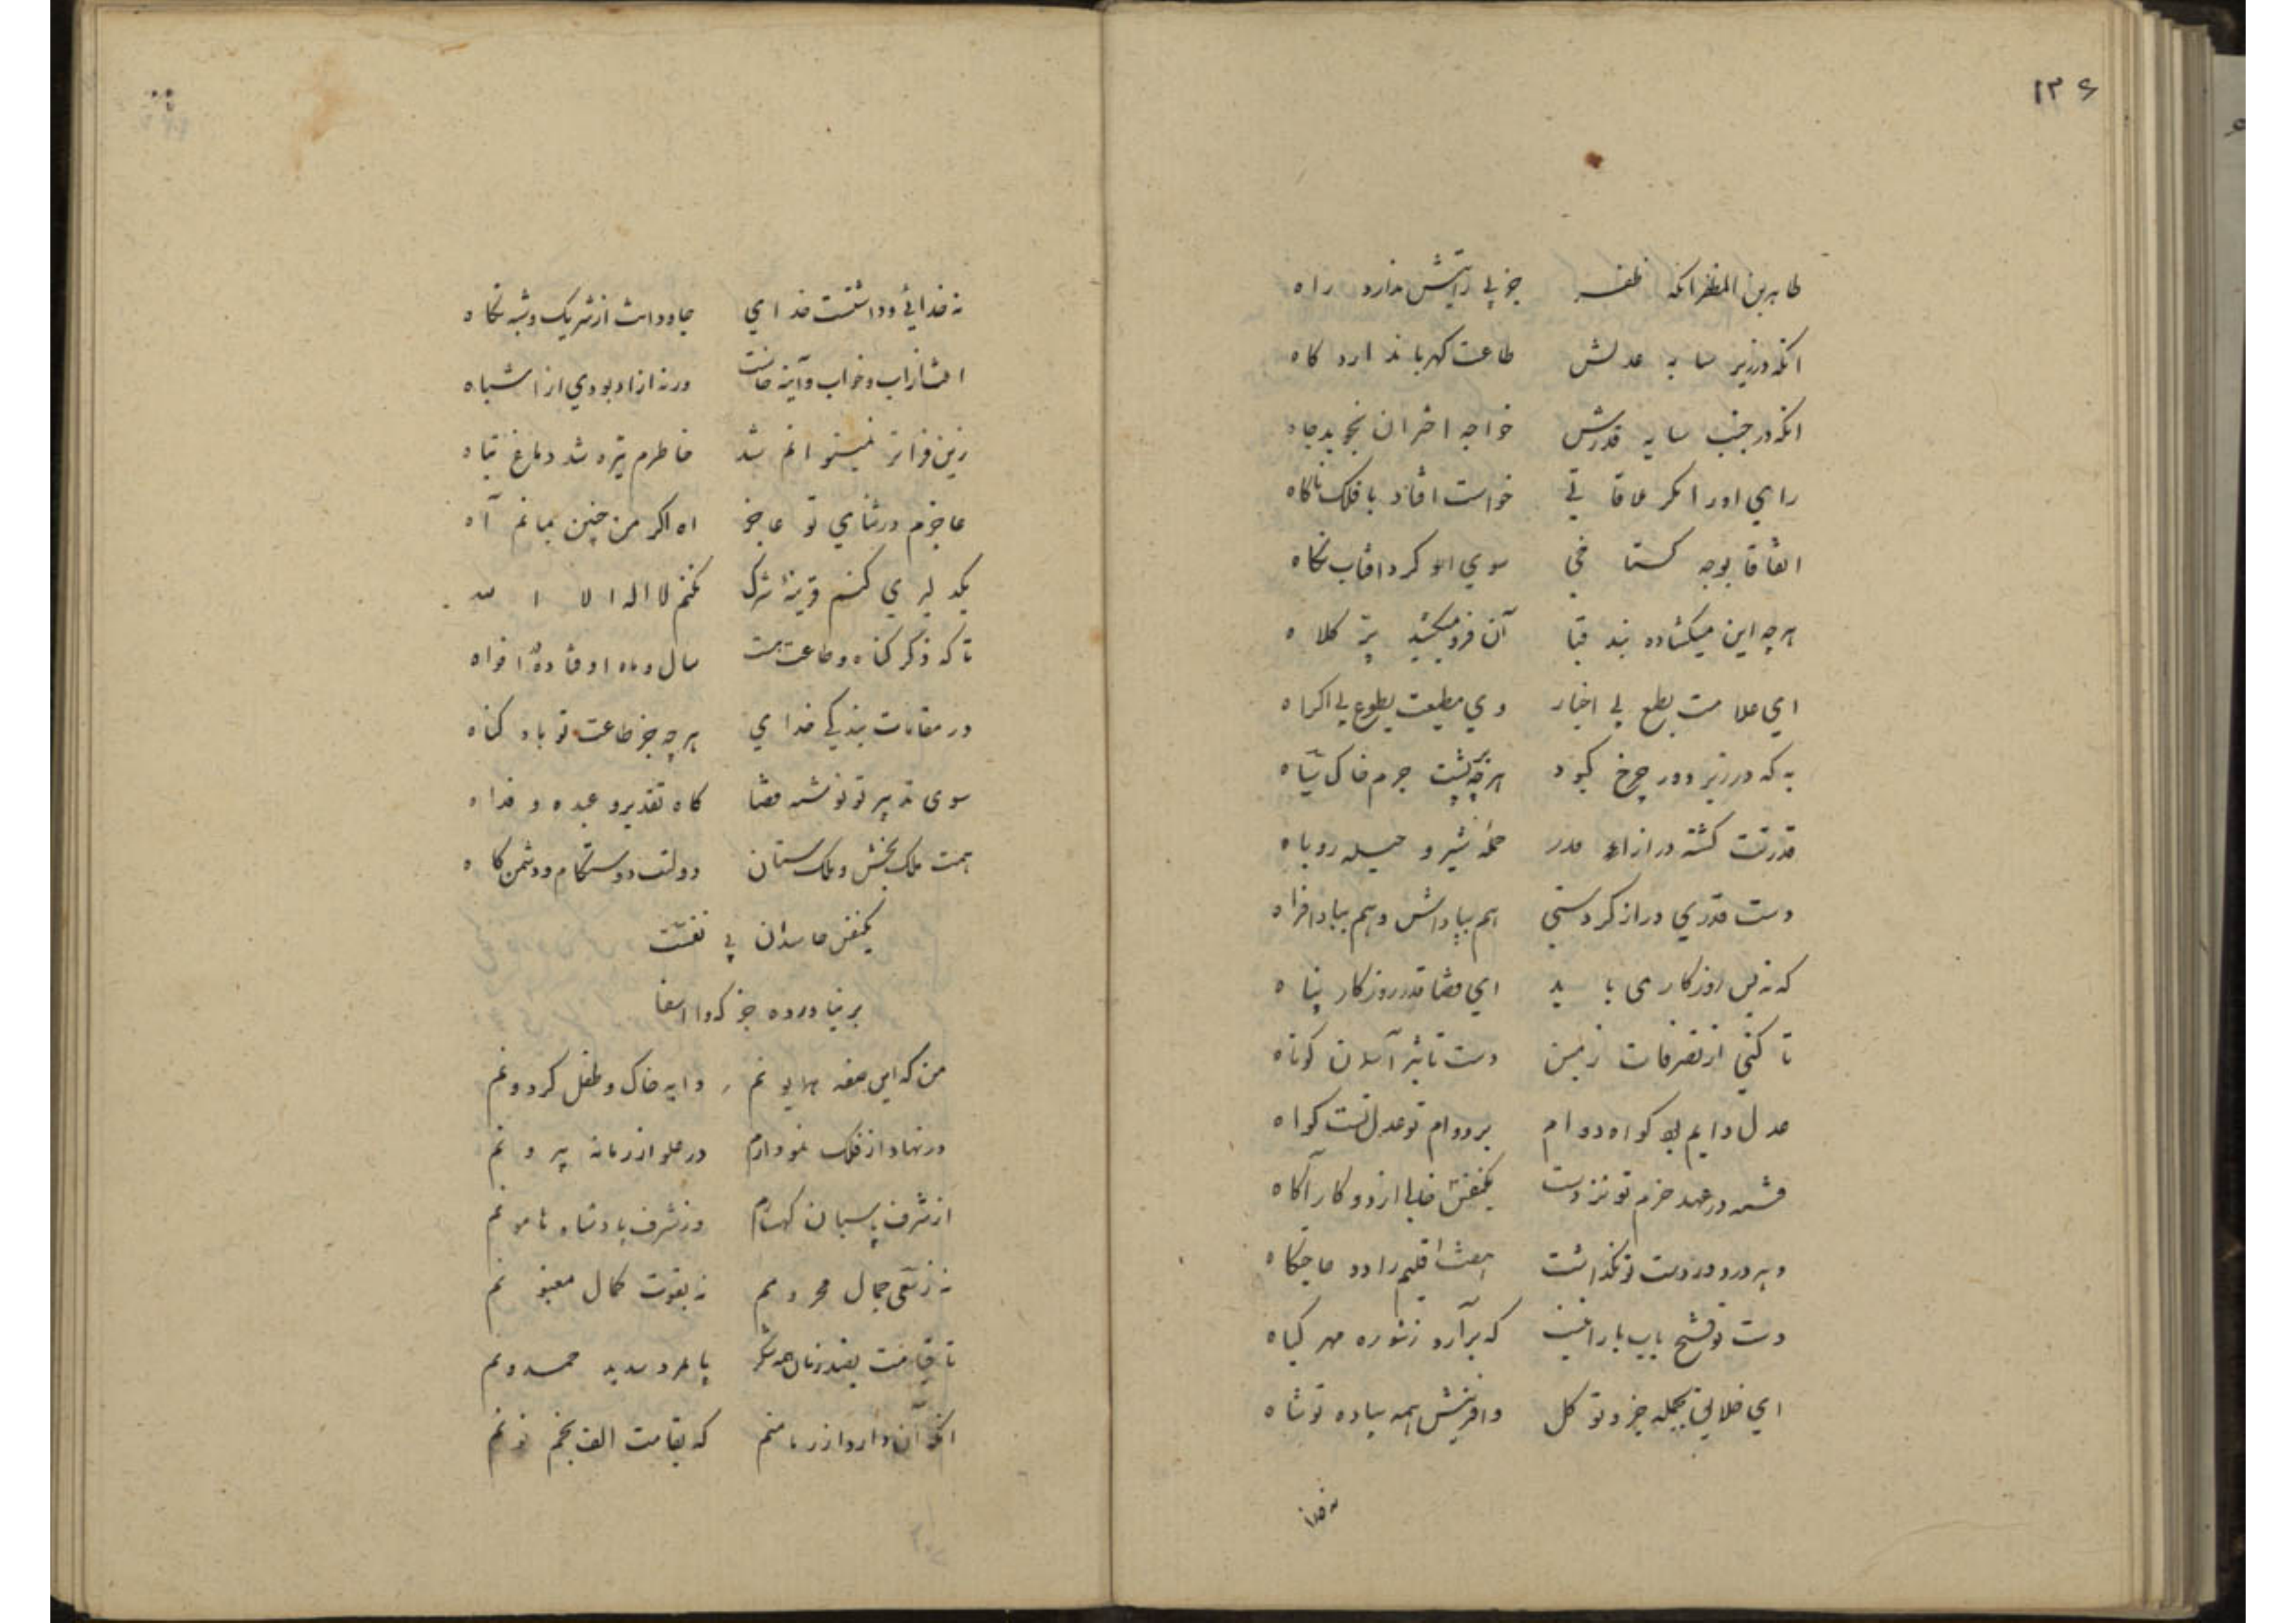 ۱۳۶
طاهر بن المظفر انکه ظفر جز پی رایتش ندارد راه
انکه در زیر سایه عدلش طاعت کهربا ندارد کاه
انکه در جنب سایه قدرش خواجه اختران نجوید جاه
رای او را مکر ملاقاتی خواست افتاد با فلک ناکاه
اتفاقا بوجه کستاخی سوی او کرد افتاب نکاه
هرچه این میکشاده بند قبا آن فرو میکشید پر کلاه
ای غلامت بطبع بی اجبار وی مطیعت بطوع بی اکراه
به که در زیر دور چرخ کبود هرچه بر پشت جرم خاک سیاه
قدرتت کشته در ازاء قدر حمله شیر و حیله روباه
دست قدری دراز کردستی هم بپاداش و هم ببادافراه
که نه بس روزکار می باید ای قضا قدر روزکار پناه
تا کنی از تصرفات زمین دست تاثیر آسمان کوتاه
عدل دایم بود کواه دوام بر دوام تو عدل تست کواه
فتنه در عهد حزم تو نزدست یکنفس خالی از دو کار آکاه
وهر در دور دست تو نکذاشت هفت اقلیم را دو حاجتکاه
دست تو فتح باب بارانیست که برآرد ز شوره مهر کیاه
ای خلایق بجمله جزو و تو کل وافرینش همه پیاده تو شاه
نه خدا
نه خدائی و داشتست خدای جاودانت از شریک و شبه نکاه
افت از اب و خواب و آینه خاست ورنه ازاد بودی از اشباه
زین فراتر نمیتوانم شد خاطرم تیره شد دماغ تباه
عاجزم در ثنای تو عاجز اه اکر من چنین بمانم آه
یکدلیری کنم قرینه شرک نکنم لا اله الا الله
تا که ذکر کناه و طاعت هست سال و ماه اوفتاده در افواه
در مقامات بندکی خدای هرچه جز طاعت تو باد کناه
سوی تدبیر تو نوشته قضا کاه تقدیر و عبده و فداه
همت ملک بخش و ملک ستان دولتت دوستکام و دشمن کاه
یکنفس حاسدان بی نفست
بر نیاورده جز که وا اسفا
من که این صفه همایونم دایه خاک و طفل کردونم
در نهاد از فلک نمودارم در علو از زمانه بیرونم
از شرف پاسبان کهسارم وز شرف پادشاه هامونم
نه ز نقش جمال محرومم نه بفوت کمال مغبونم
تا قیامت بصد زبان همه شکر پا مرد سدید حمدونم
انکه آن دارد از زمانه منم که بقامت الف بخم نونم